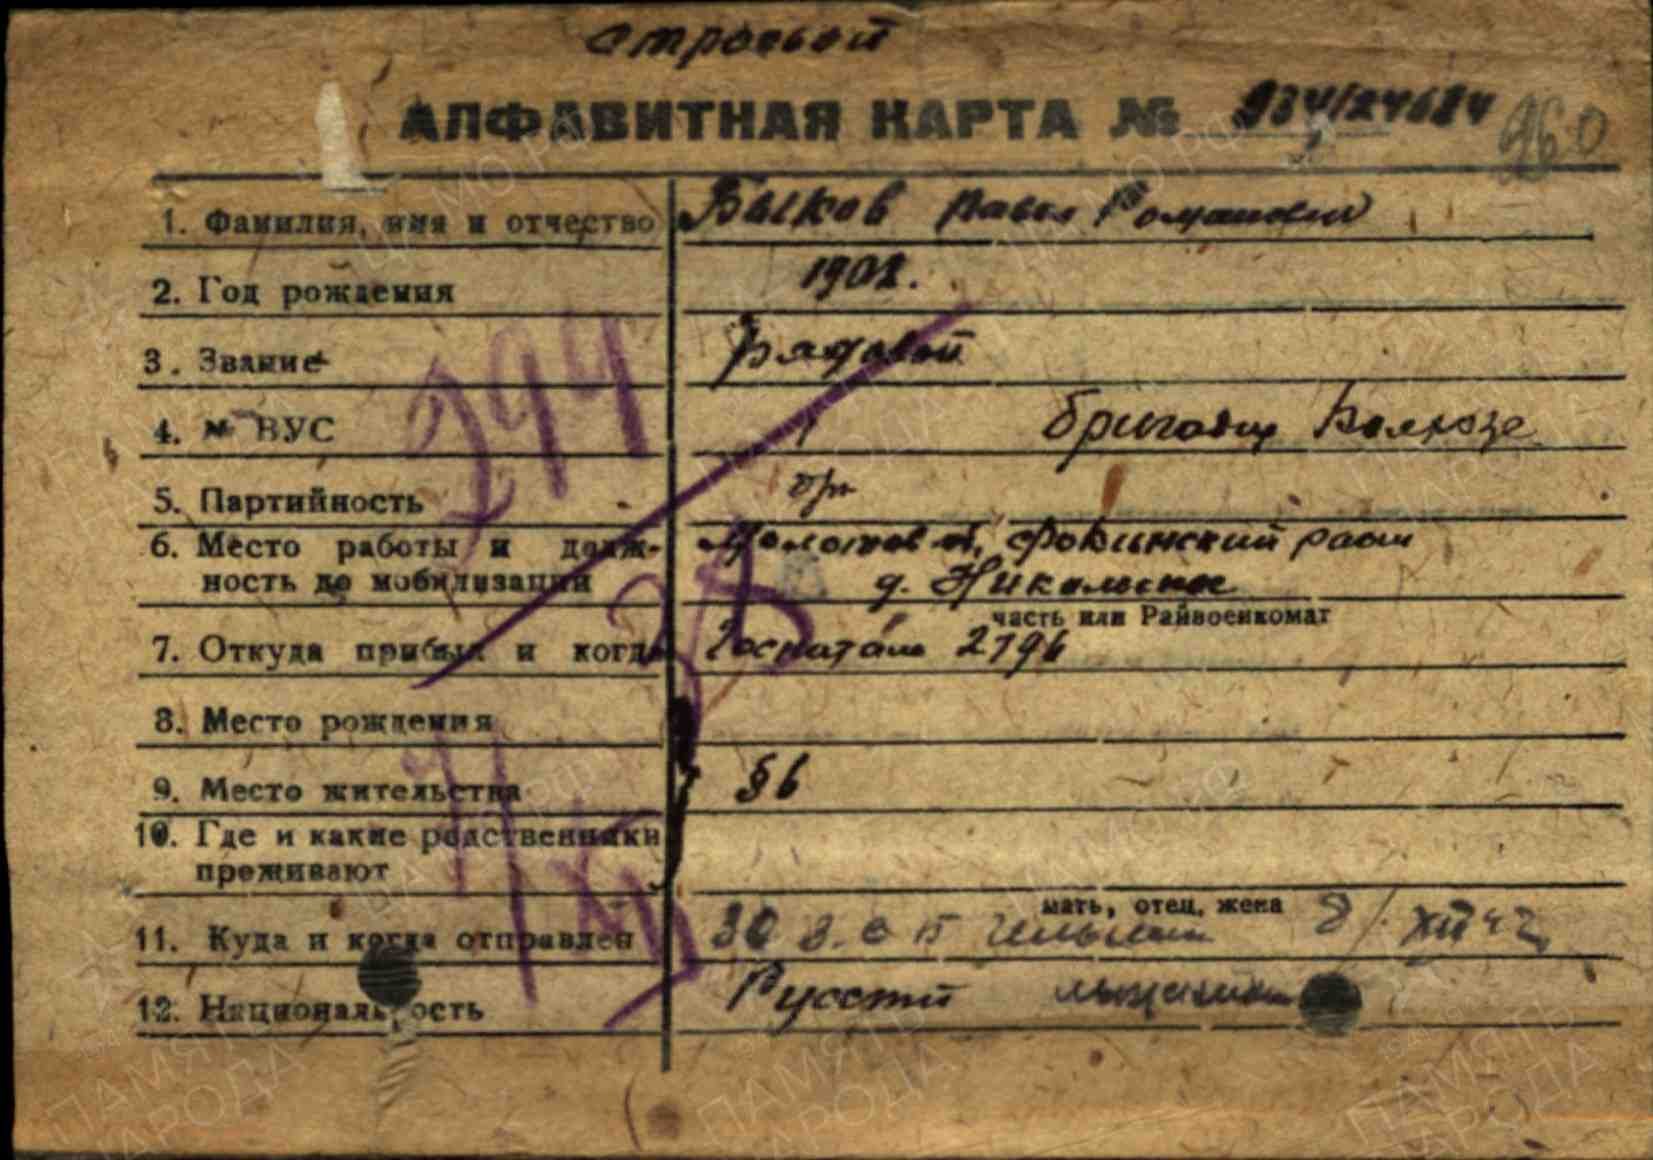 строевой
АЛФАВИТНАЯ КАРТА №
260
1. Фамилия, имя и отчество Быков Павел Романович
2. Год рождения 1902.
3. Звание Рядовой
294
4. № ВУС 1 бригадир Колхозе
5. Партийность б/п
6. Место работы и долж- Молотов об, Фокинский район
ность до мобилизации д. Никольское
часть или Райвоенкомат
7. Откуда прибыл и когда Госпиталь 2796
8. Место рождения
9. Место жительства § 6
10. Где и какие родственники
преживают
мать, отец, жена
11. Куда и когда отправлен 30 з. с п 8/XII 42
12. Национальность Русский
ПАМЯТЬ НАРОДА
ЦА МО РФ